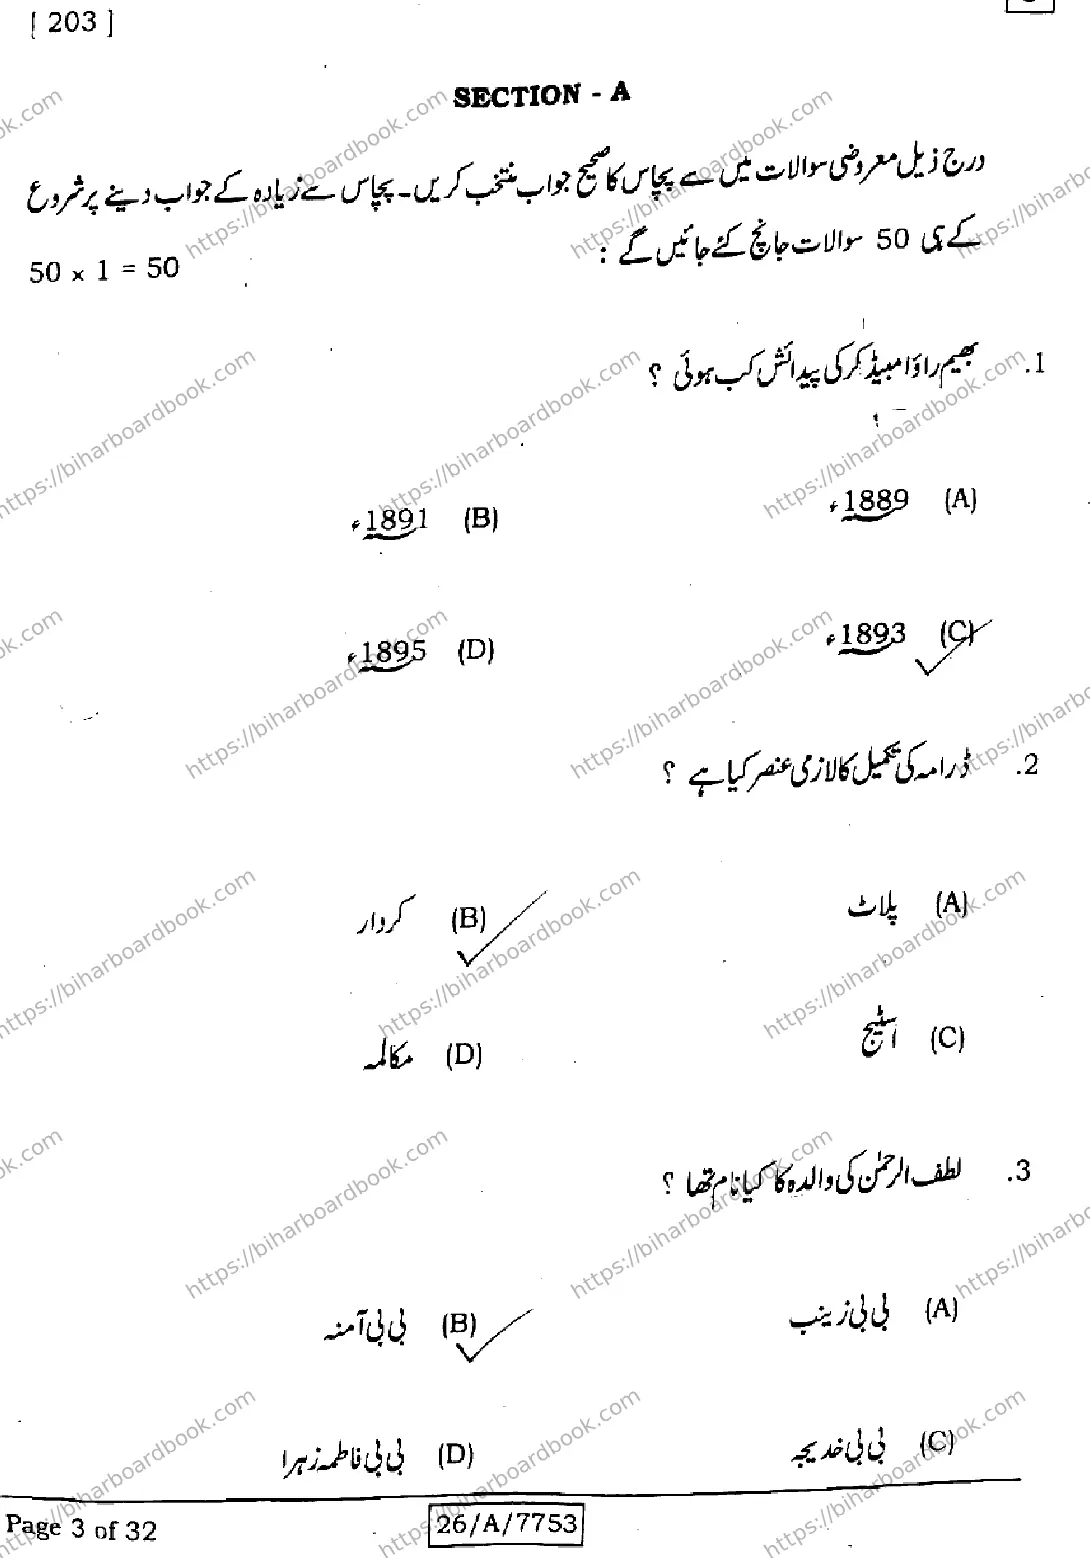 [ 203 ]
SECTION - A
درج ذیل معروضی سوالات میں سے پچاس کا صحیح جواب منتخب کریں۔ پچاس سے زیادہ کے جواب دینے پر شروع
کے ہی 50 سوالات جانچ کئے جائیں گے :
50 x 1 = 50
1. بھیم راؤ امبیڈکر کی پیدائش کب ہوئی ؟
(A) 1889ء (B) 1891ء
(C) 1893ء (D) 1895ء
2. ڈرامہ کی تکمیل کا لازمی عنصر کیا ہے ؟
(A) پلاٹ (B) کردار
(C) اسٹیج (D) مکالمہ
3. لطف الرحمٰن کی والدہ کا کیا نام تھا ؟
(A) بی بی زینب (B) بی بی آمنہ
(C) بی بی خدیجہ (D) بی بی فاطمہ زہرا
Page 3 of 32
26/A/7753
https://biharboardbook.com